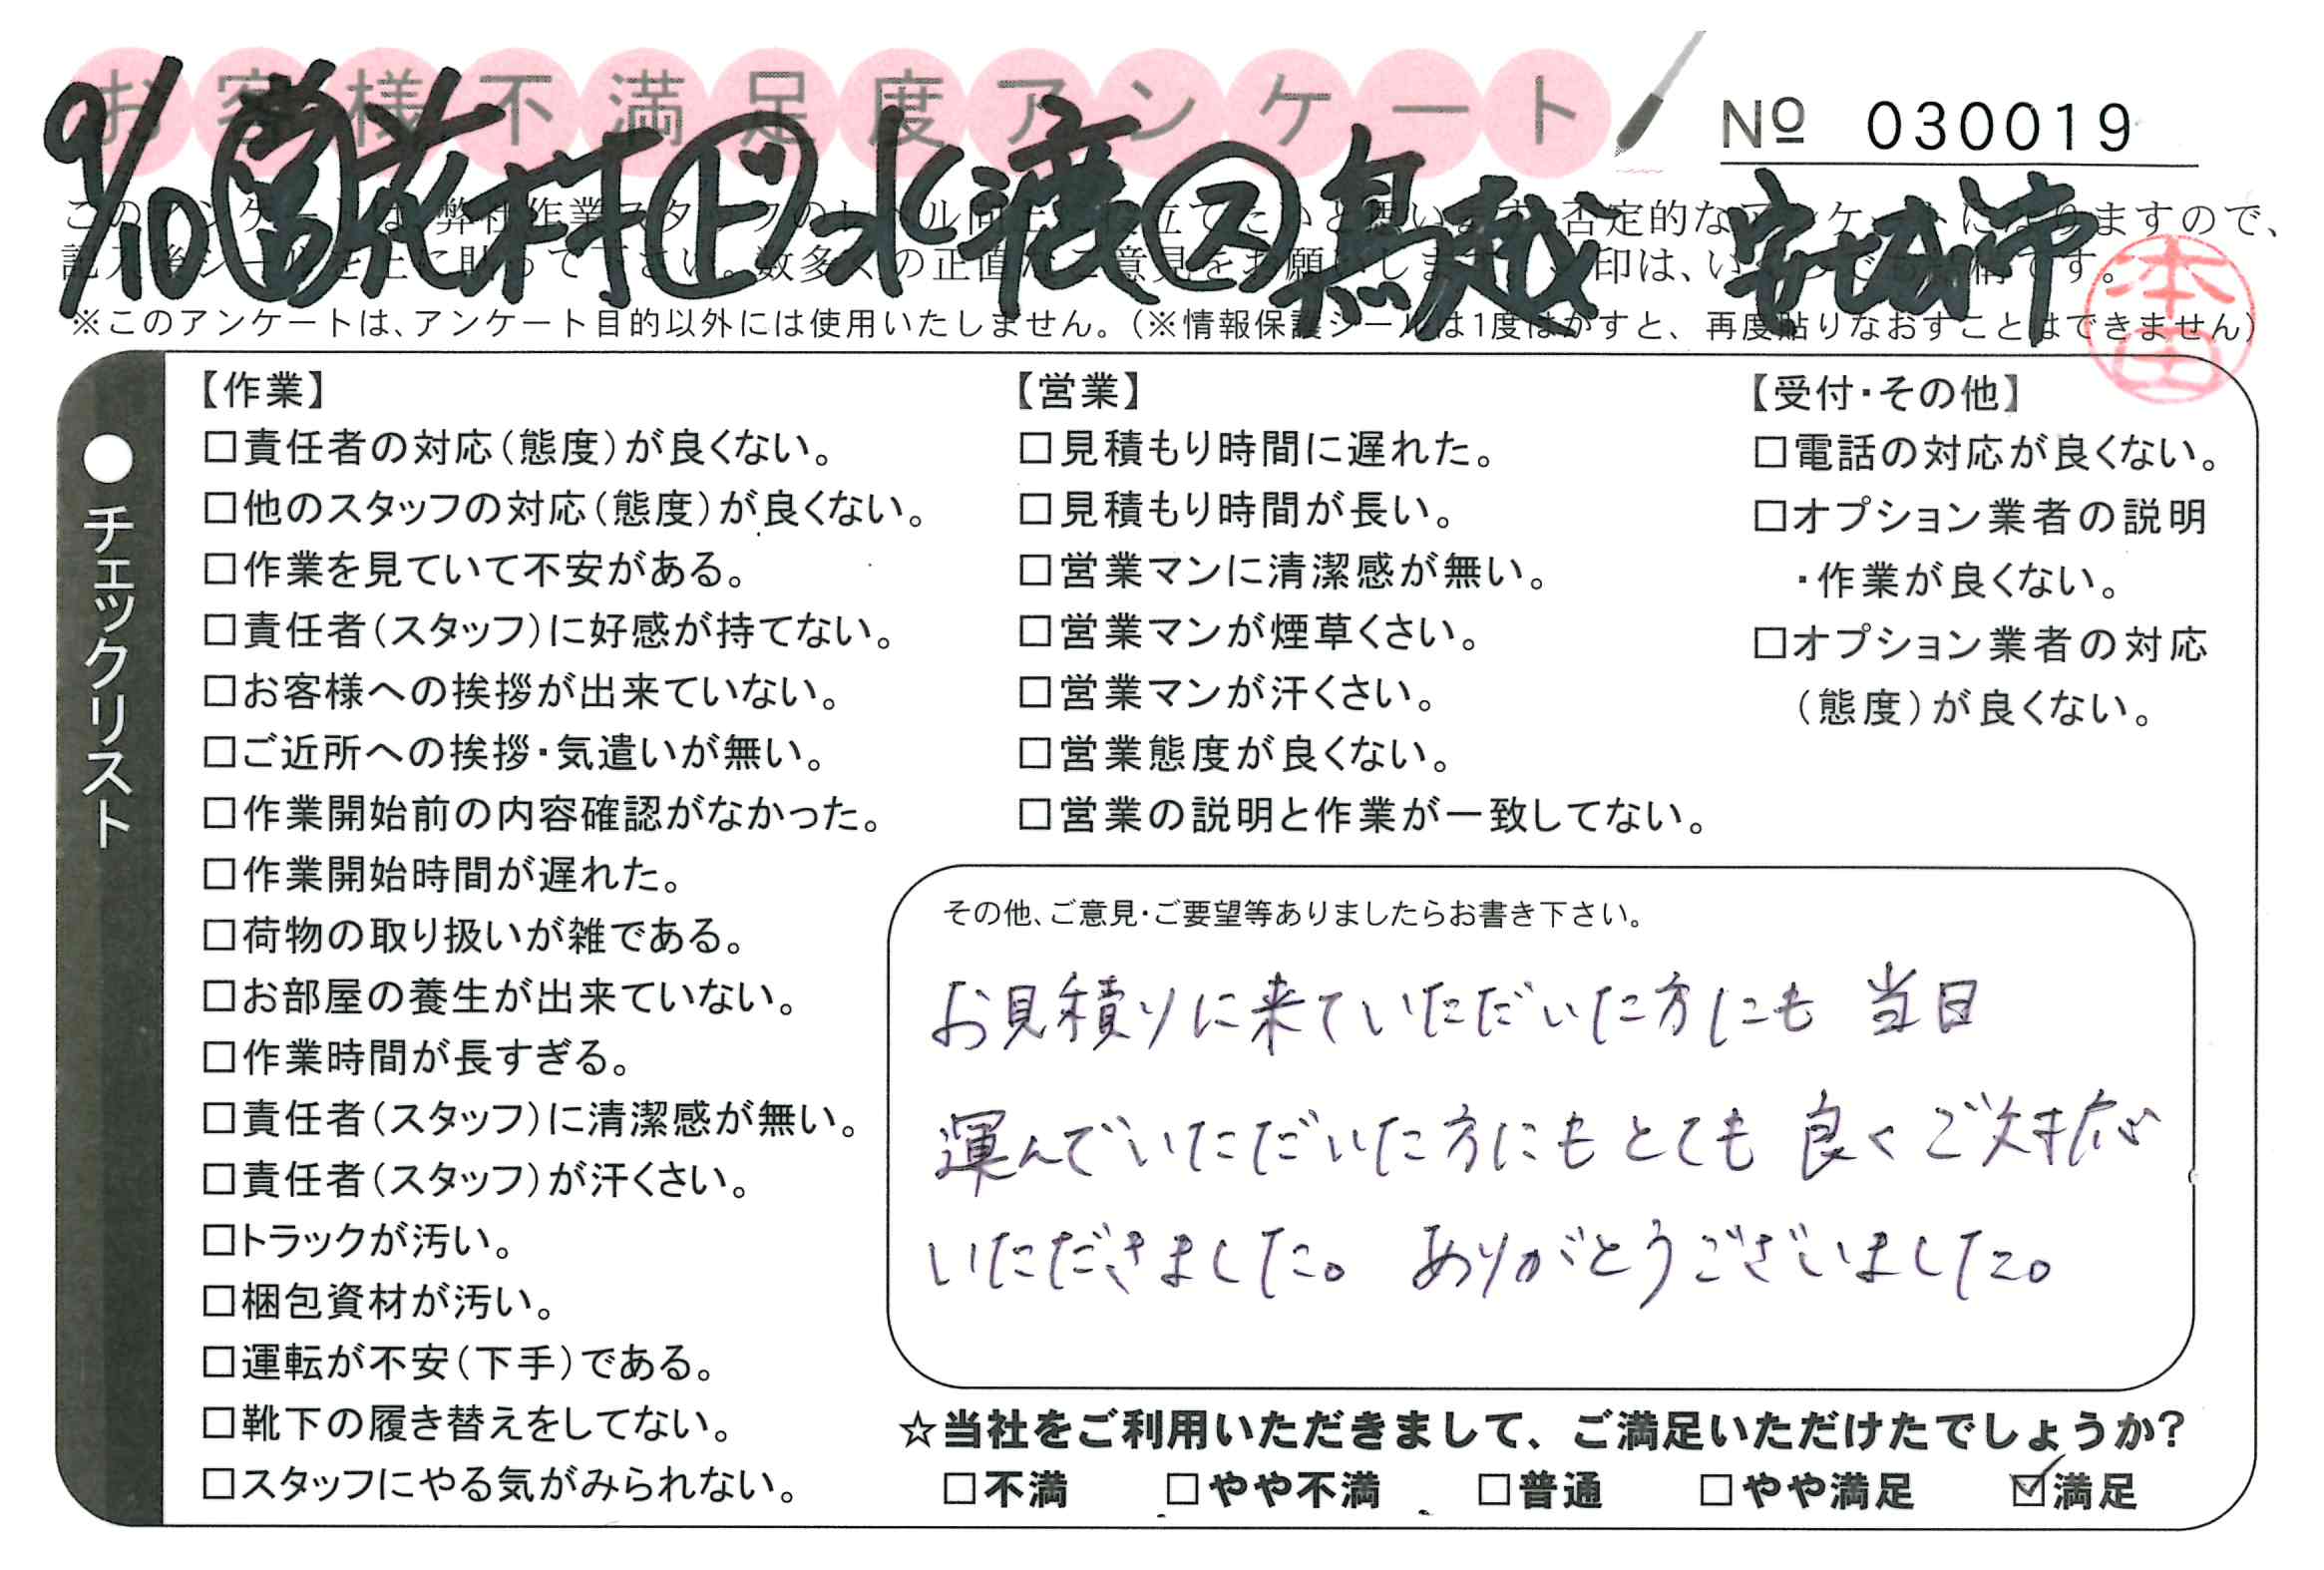 お客様不満足度アンケート
Nº 030019
9/10 営 花村 ヒ 水漉 ス 鳥越 安城市
※このアンケートは、アンケート目的以外には使用いたしません。(※情報保護シールは1度はがすと、再度貼りなおすことはできません)
本田
●チェックリスト
【作業】
□責任者の対応(態度)が良くない。
□他のスタッフの対応(態度)が良くない。
□作業を見ていて不安がある。
□責任者(スタッフ)に好感が持てない。
□お客様への挨拶が出来ていない。
□ご近所への挨拶・気遣いが無い。
□作業開始前の内容確認がなかった。
□作業開始時間が遅れた。
□荷物の取り扱いが雑である。
□お部屋の養生が出来ていない。
□作業時間が長すぎる。
□責任者(スタッフ)に清潔感が無い。
□責任者(スタッフ)が汗くさい。
□トラックが汚い。
□梱包資材が汚い。
□運転が不安(下手)である。
□靴下の履き替えをしてない。
□スタッフにやる気がみられない。
【営業】
□見積もり時間に遅れた。
□見積もり時間が長い。
□営業マンに清潔感が無い。
□営業マンが煙草くさい。
□営業マンが汗くさい。
□営業態度が良くない。
□営業の説明と作業が一致してない。
【受付・その他】
□電話の対応が良くない。
□オプション業者の説明
・作業が良くない。
□オプション業者の対応
(態度)が良くない。
その他、ご意見・ご要望等ありましたらお書き下さい。
お見積りに来ていただいた方にも 当日
運んでいただいた方にもとても 良くご対応
いただきました。ありがとうございました。
☆当社をご利用いただきまして、ご満足いただけたでしょうか?
□不満 □やや不満 □普通 □やや満足 ☑満足